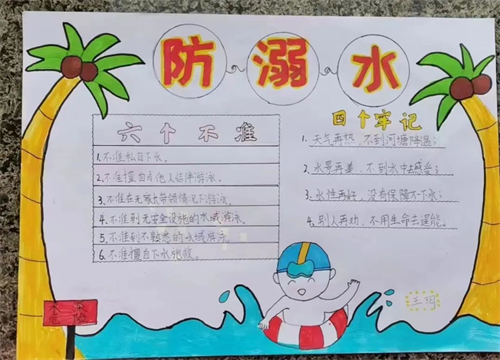 防溺水
六个不准
1.不准私自下水。
2.不准擅自与他人结伴游泳。
3.不准在无家长带领情况下游泳。
4.不准到无安全设施的水域游泳。
5.不准到不熟悉的水域游泳。
6.不准擅自下水施救。
四个牢记
1、天气再热,不到河塘降温;
2、水景再美,不到水中去感受;
3、水性再好,没有保障不下水;
4、别人再劝,不用生命去逞能。
危险